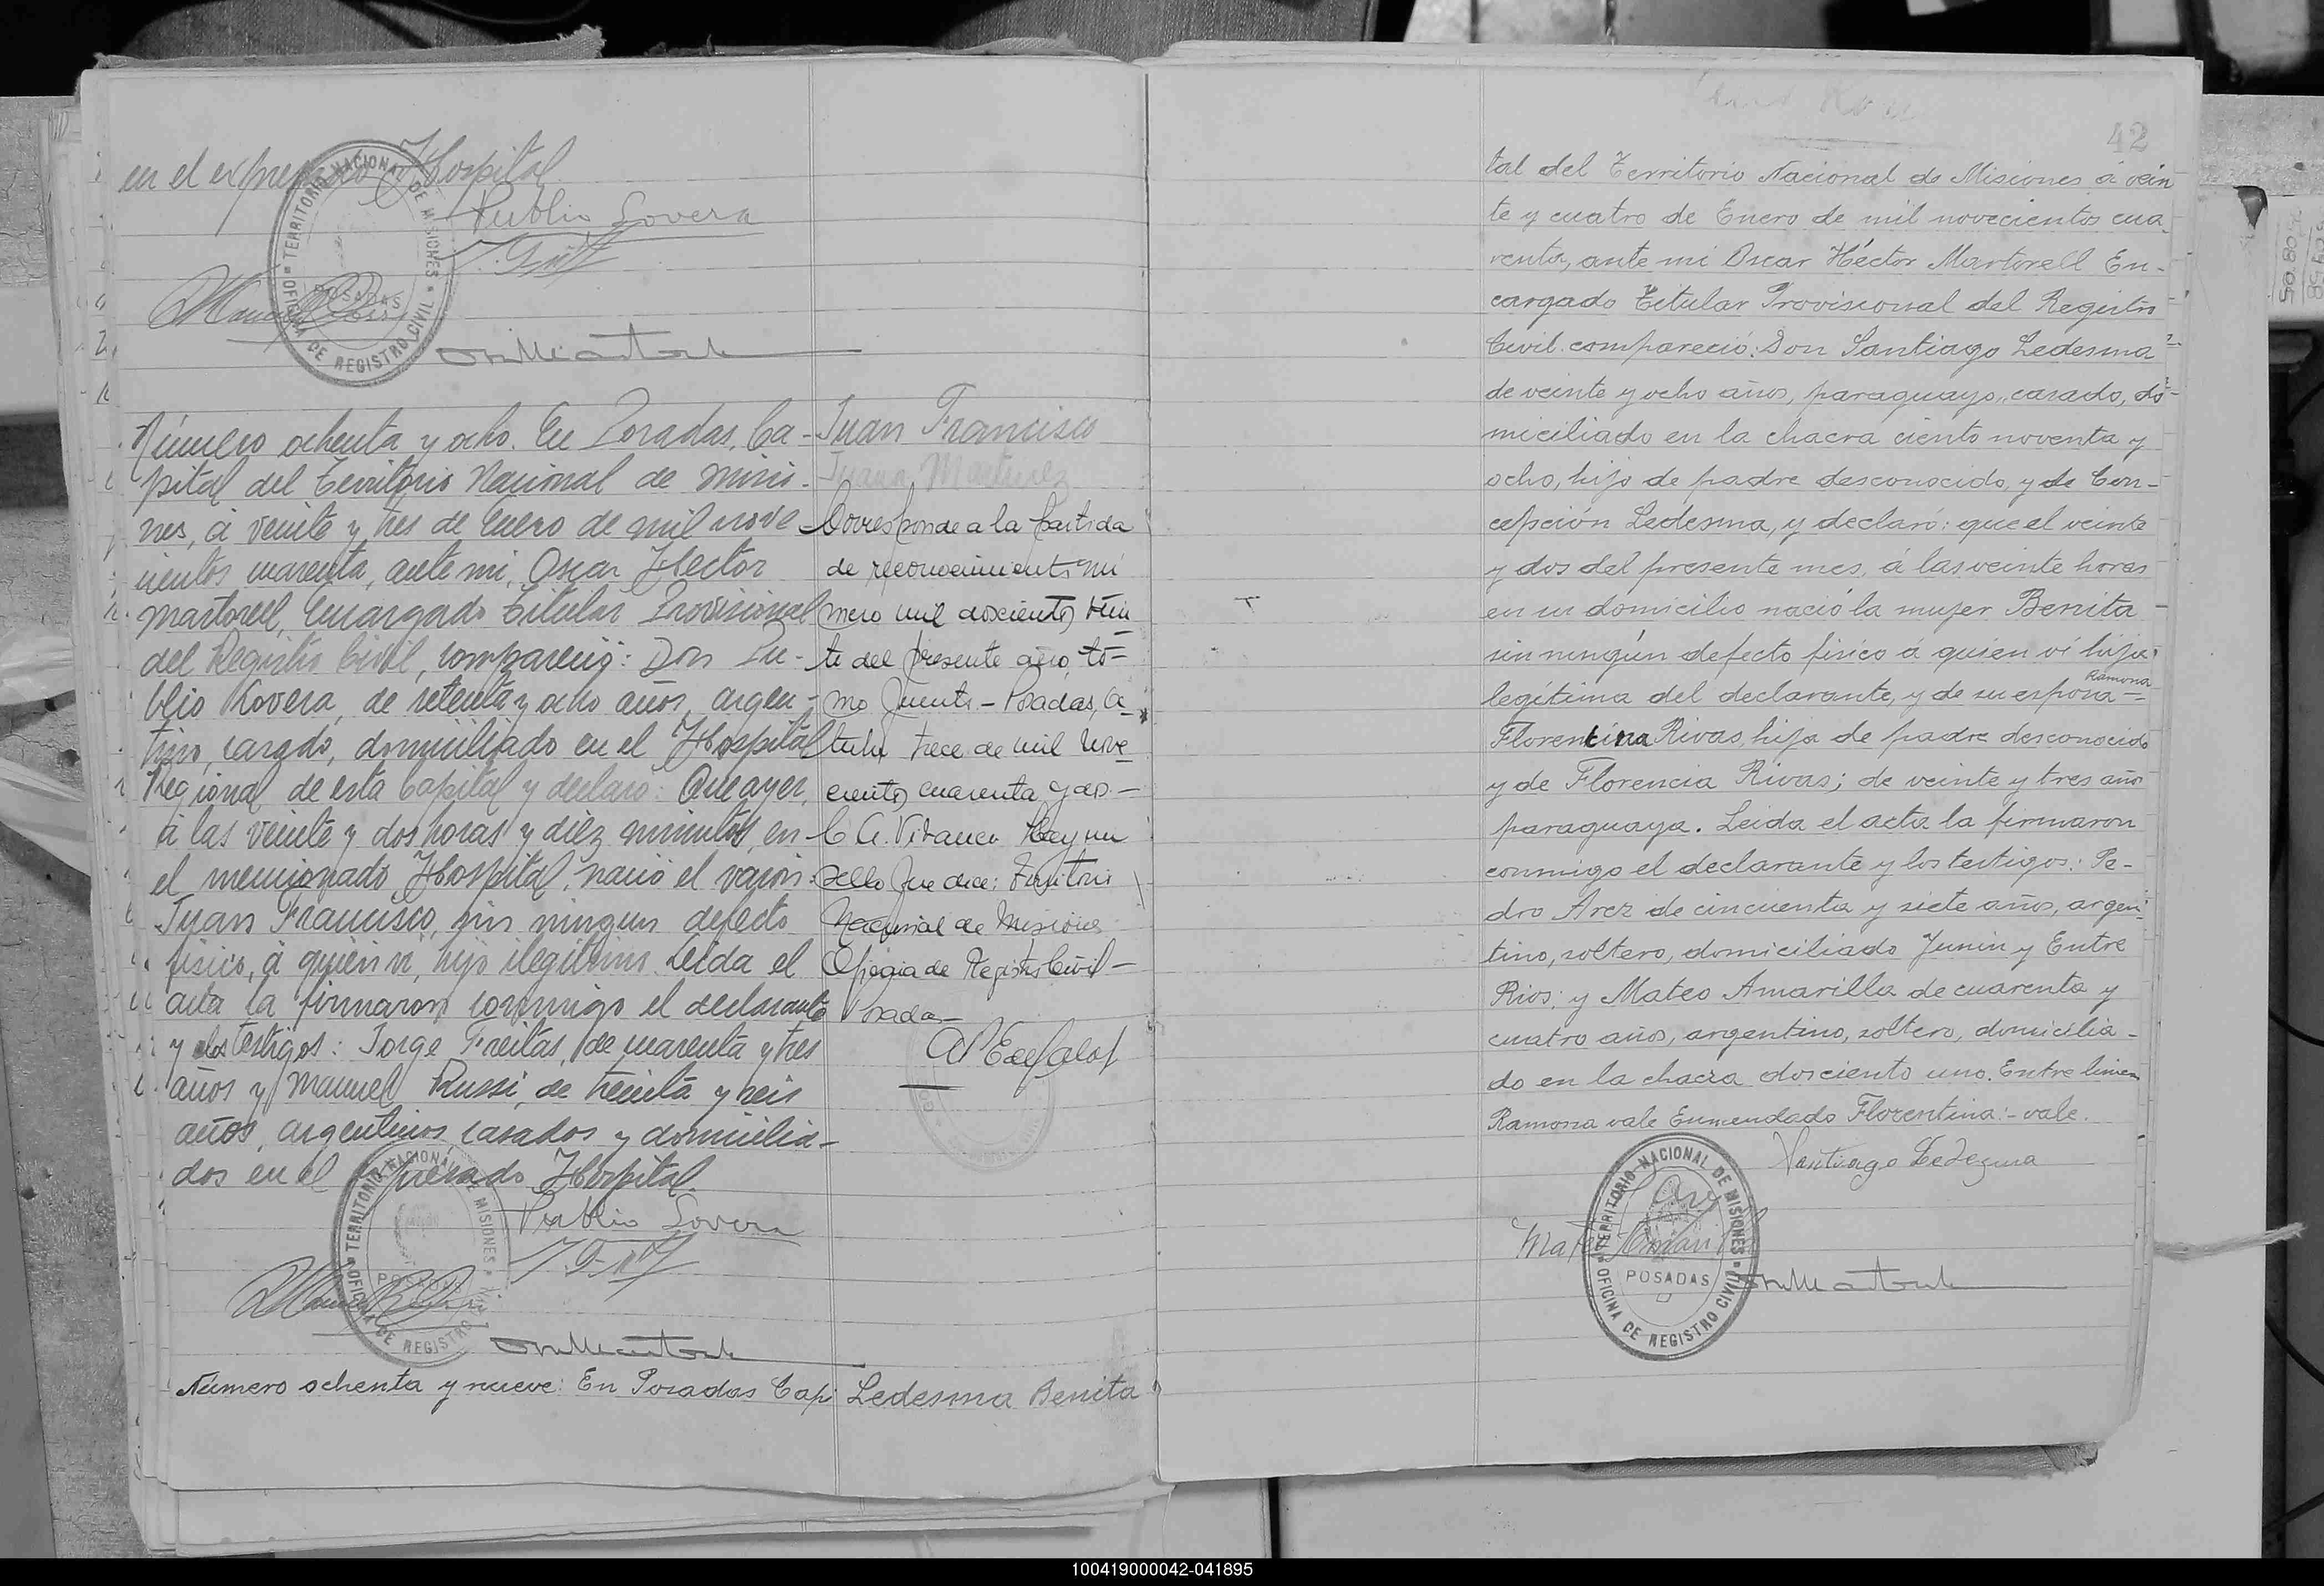 en el expresado Hospital
Publio Lovera
TERRITORIO NACIONAL DE MISIONES
POSADAS
OFICINA DE REGISTRO CIVIL
Número ochenta y ocho. En Posadas, Ca-
pital del Territorio Nacional de Misio-
nes, á veinte y tres de Enero de mil nove-
cientos cuarenta, ante mi, Oscar Hector
Martorell, Encargado Titular Provisional
del Registro Civil, compareció: Don Pu-
blio Lovera, de setenta y ocho años, argen-
tino, casado, domiciliado en el Hospital
Regional de esta Capital y declaró: Que ayer,
á las veinte y dos horas y diez minutos, en
el mencionado Hospital, nació el varón:
Juan Francisco, sin ningun defecto
físico, á quien ví, hijo ilegítimo. Leída el
acta la firmaron conmigo el declarante
y los testigos: Jorge Freitas, de cuarenta y tres
años y Manuel Russi, de treinta y seis
años, argentinos, casados y domicilia-
dos en el expresado Hospital.
Publio Lovera
TERRITORIO NACIONAL DE MISIONES
POSADAS
OFICINA DE REGISTRO CIVIL
Número ochenta y nueve: En Posadas Capi
Juan Francisco
Juana Martinez
Corresponde a la partida
de reconocimiento nú
mero mil doscientos vein
te del presente año, to-
mo - Posadas, Oc
tubre trece de mil nove
cientos cuarenta y dos.-
Hay un
sello que dice: Territorio
Nacional de Misiones
Oficina de Registro Civil-
Posadas-
Ledesma Benita
42
tal del Territorio Nacional de Misiones á vein
te y cuatro de Enero de mil novecientos cua
renta, ante mi Oscar Héctor Martorell En-
cargado Titular Provisional del Registro
Civil. compareció: Don Santiago Ledesma
de veinte y ocho años, paraguayo, casado, do-
miciliado en la chacra ciento noventa y
ocho, hijo de padre desconocido, y de Con-
cepción Ledesma, y declaró: que el veinte
y dos del presente mes, á las veinte horas
en su domicilio nació la mujer Benita
sin ningún defecto físico á quien ví hija
legítima del declarante, y de su esposa Ramona
Florentina Rivas, hija de padre desconocido
y de Florencia Rivas; de veinte y tres año
paraguaya. Leida el acta la firmaron
conmigo el declarante y los testigos: Pe-
dro Arez de cincuenta y siete años, argen
tino, soltero, domiciliado Junin y Entre
Rios; y Mateo Amarilla de cuarenta y
cuatro años, argentino, soltero, domicilia-
do en la chacra dosciento uno. Entre lineas
Ramona vale Enmendado Florentina:-vale.
Santiago Ledesma
TERRITORIO NACIONAL DE MISIONES
POSADAS
OFICINA DE REGISTRO CIVIL
100419000042-041895